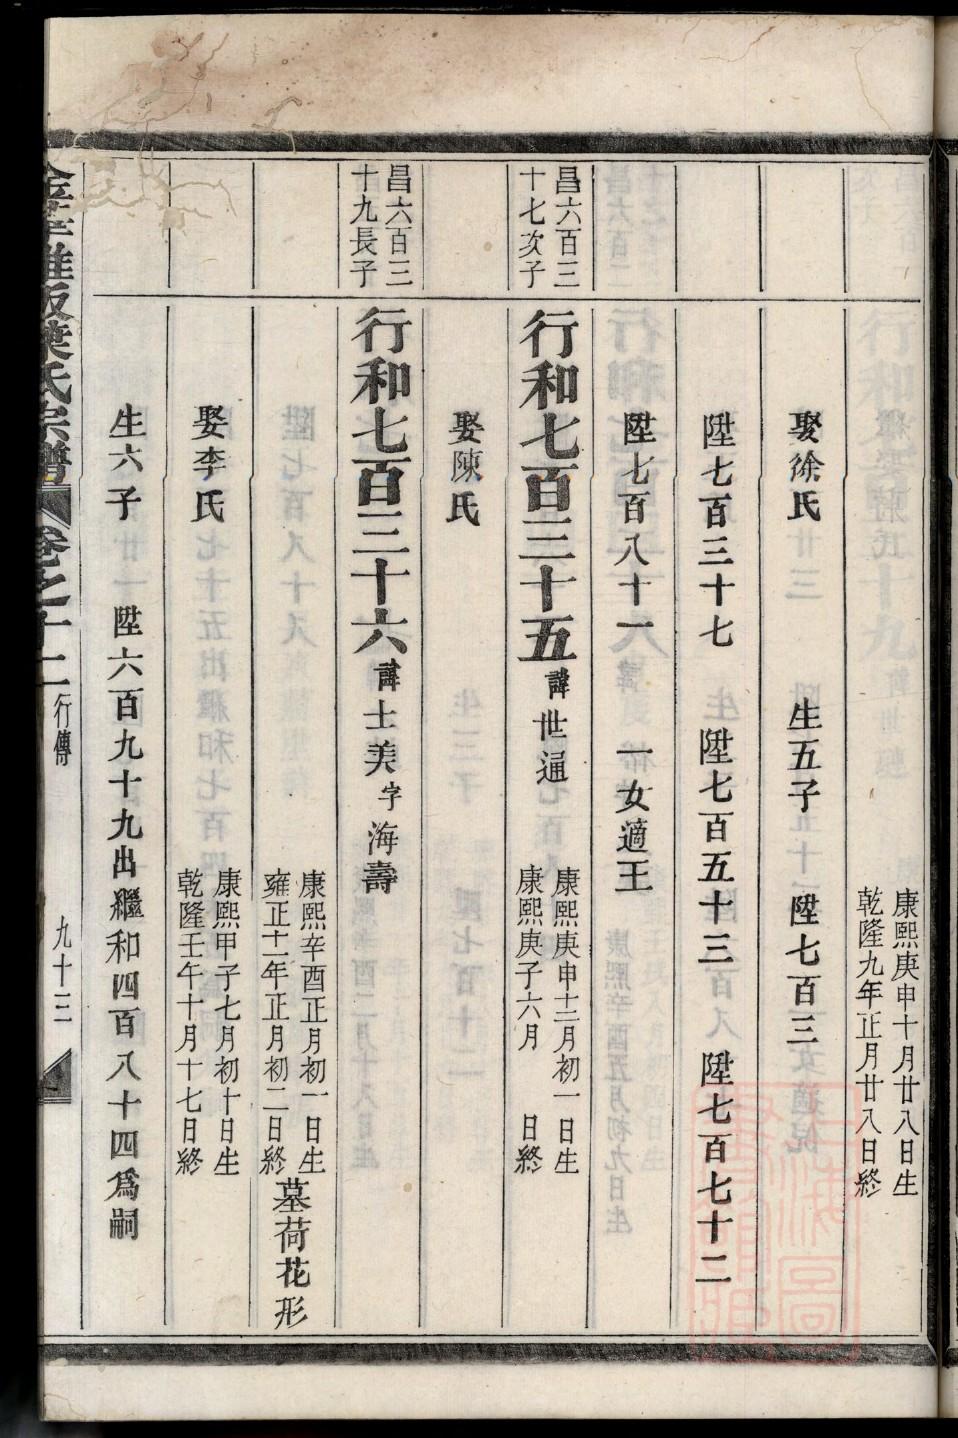 康熙庚申十月廿八日生
乾隆九年正月廿八日終
娶徐氏　生五子　陞七百三
陞七百三十七　陞七百五十三　陞七百七十二
陞七百八十一　一女適王
昌六百三
十七次子
行和七百三十五諱世通
康熙庚申十二月初一日生
康熙庚子六月　日終
娶陳氏
昌六百三
十九長子
行和七百三十六諱士美字海壽
康熙辛酉正月初一日生
雍正十一年正月初二日終
墓荷花形
娶李氏
康熙甲子七月初十日生
乾隆壬午十月十七日終
生六子　陞六百九十九出繼和四百八十四爲嗣
葉氏宗譜　卷之十二　行傳　九十三